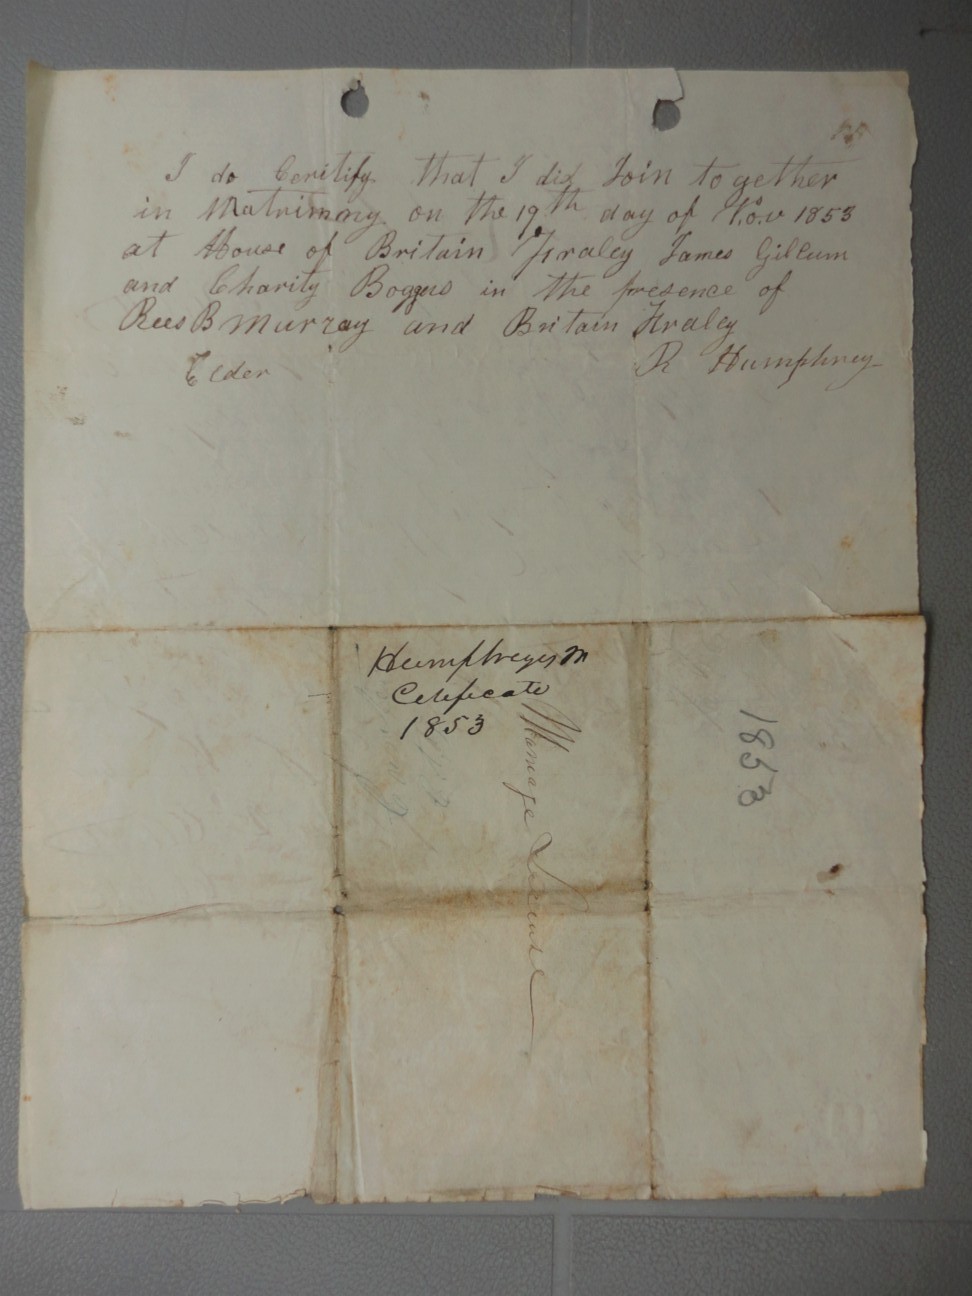 I do Ceritify that I did Join together
in Matrimny on the 19th day of Nov 1853
at House of Britain Fraley James Gillum
and Charity Boggus in the presence of
Rees B Murray and Britain Fraley
Elder R Humphrey
Humphreys M
Cetificate
1853
Marriage License
1853